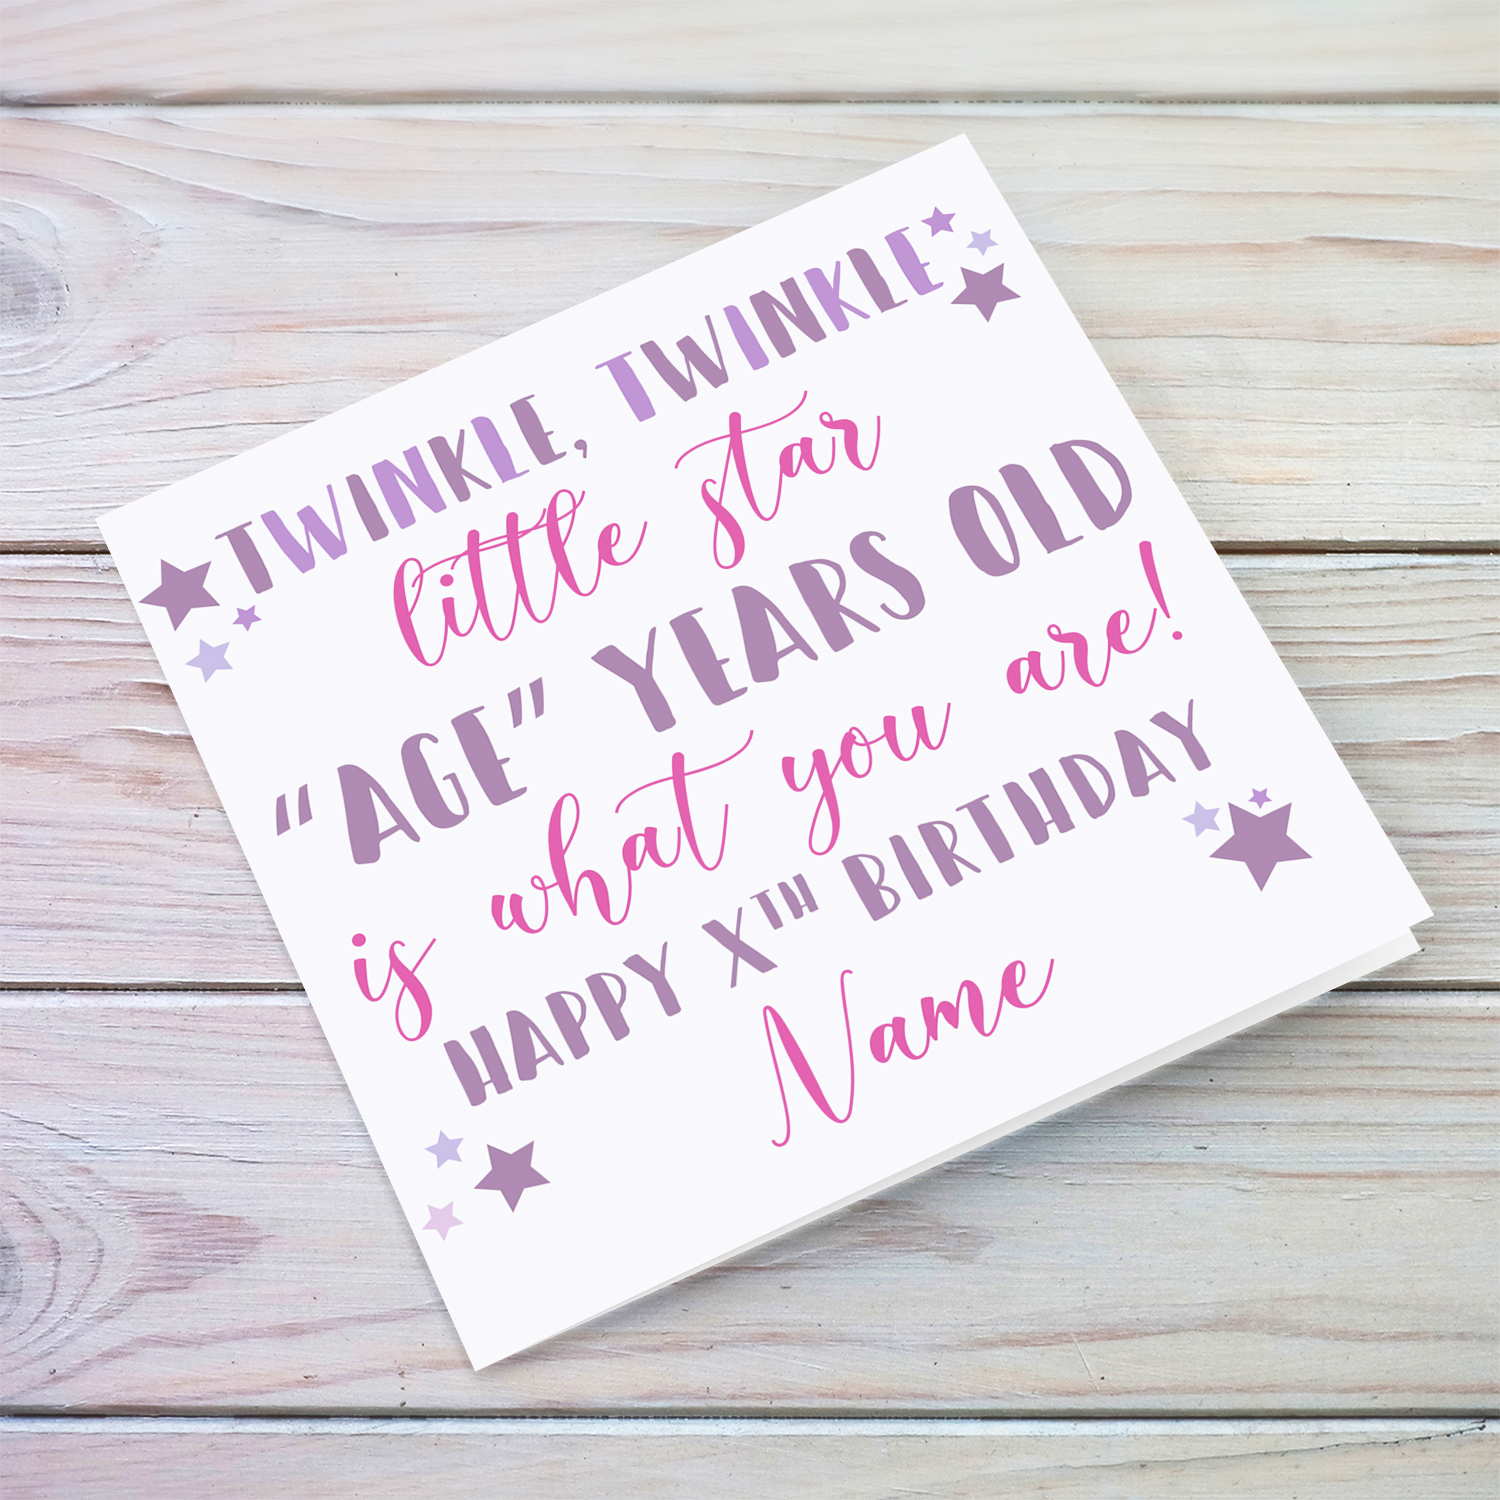 TWINKLE, TWINKLE
little star
"AGE" YEARS OLD
is what you are!
HAPPY XTH BIRTHDAY
Name